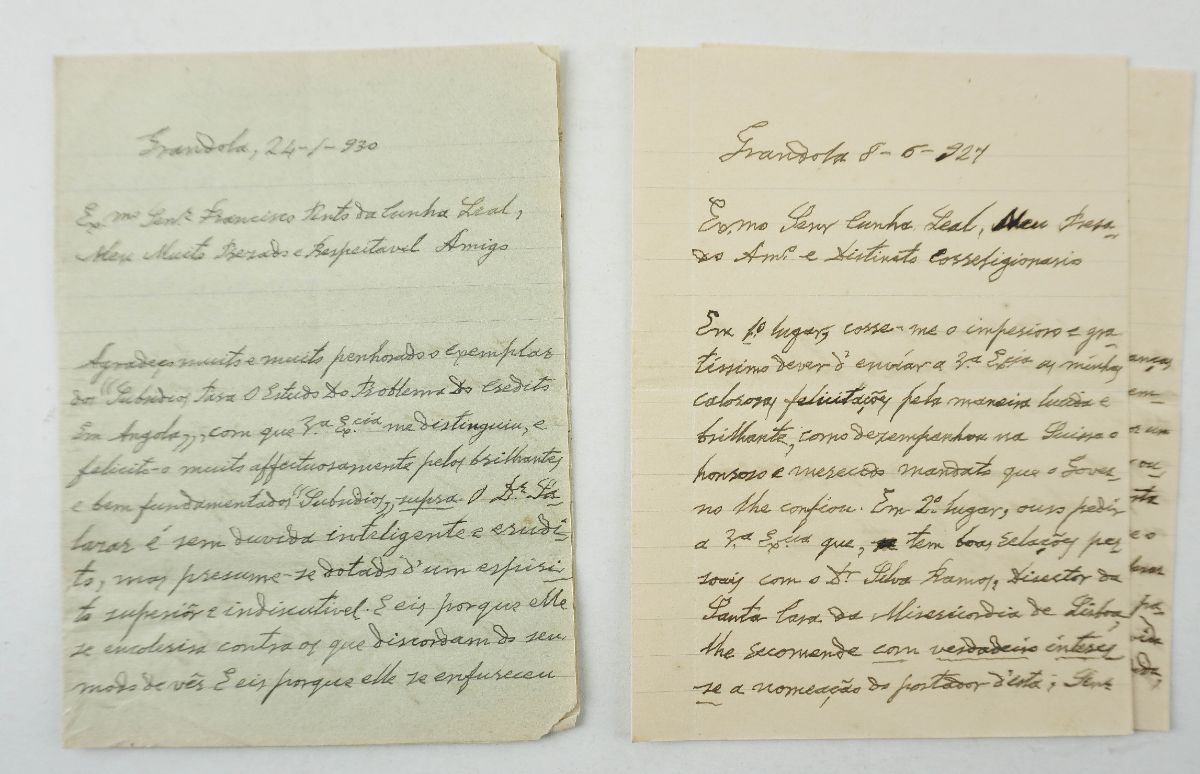 Grandola, 24-1-930
Ex.mo Senr. Francisco Pinto da Cunha Leal,
Meu Muito Prezado e Respeitavel Amigo
Agradeço muito e muito penhorado o exemplar
dos "Subsidios Para O Estudo Do Problema Do Credito
Em Angola,,, com que V.a Ex.cia me distinguiu, e
felicito-o muito affectuosamente pelos brilhantes
e bem fundamentados "Subsidios,, supra. O Dr. Sa-
lazar é sem duvida inteligente e erudi-
to, mas presume-se dotado d'um espiri-
to superiôr e indiscutivel. E eis porque elle
se encolerisa contra os que discordam do seu
modo de vêr. E eis porque elle se enfureceu
Grandola 8-6-927
Ex.mo Senr Cunha Leal, Meu Presa-
do Am.o e Distinto Correligionario
Em 1º lugar, corre-me o imperioso e gra-
tissimo dever d'enviar a V.a Ex.cia as minhas
calorosas felicitações pela maneira lucida e
brilhante, como dezempenhou na Suissa o
honroso e merecido mandato que o Gover-
no lhe confiou. Em 2º lugar, ouso pedir
a V.a Ex.cia que, se tem boas relações pes-
soais com o Dr. Silva Ramos, Director da
Santa Casa da Misericordia de Lisboa,
lhe recomende com verdadeiro interes-
se a nomeação do portador d'esta, Senr